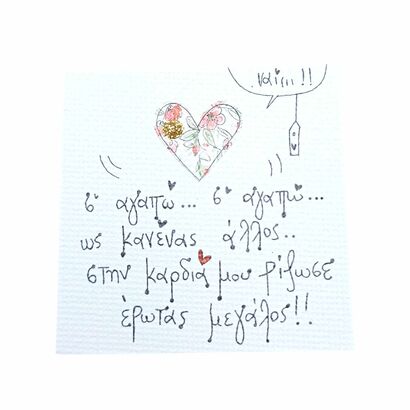 ναι...!!
σ' αγαπώ... σ' αγαπώ...
ως κανένας άλλος..
στην καρδιά μου ρίζωσε
έρωτας μεγάλος!!